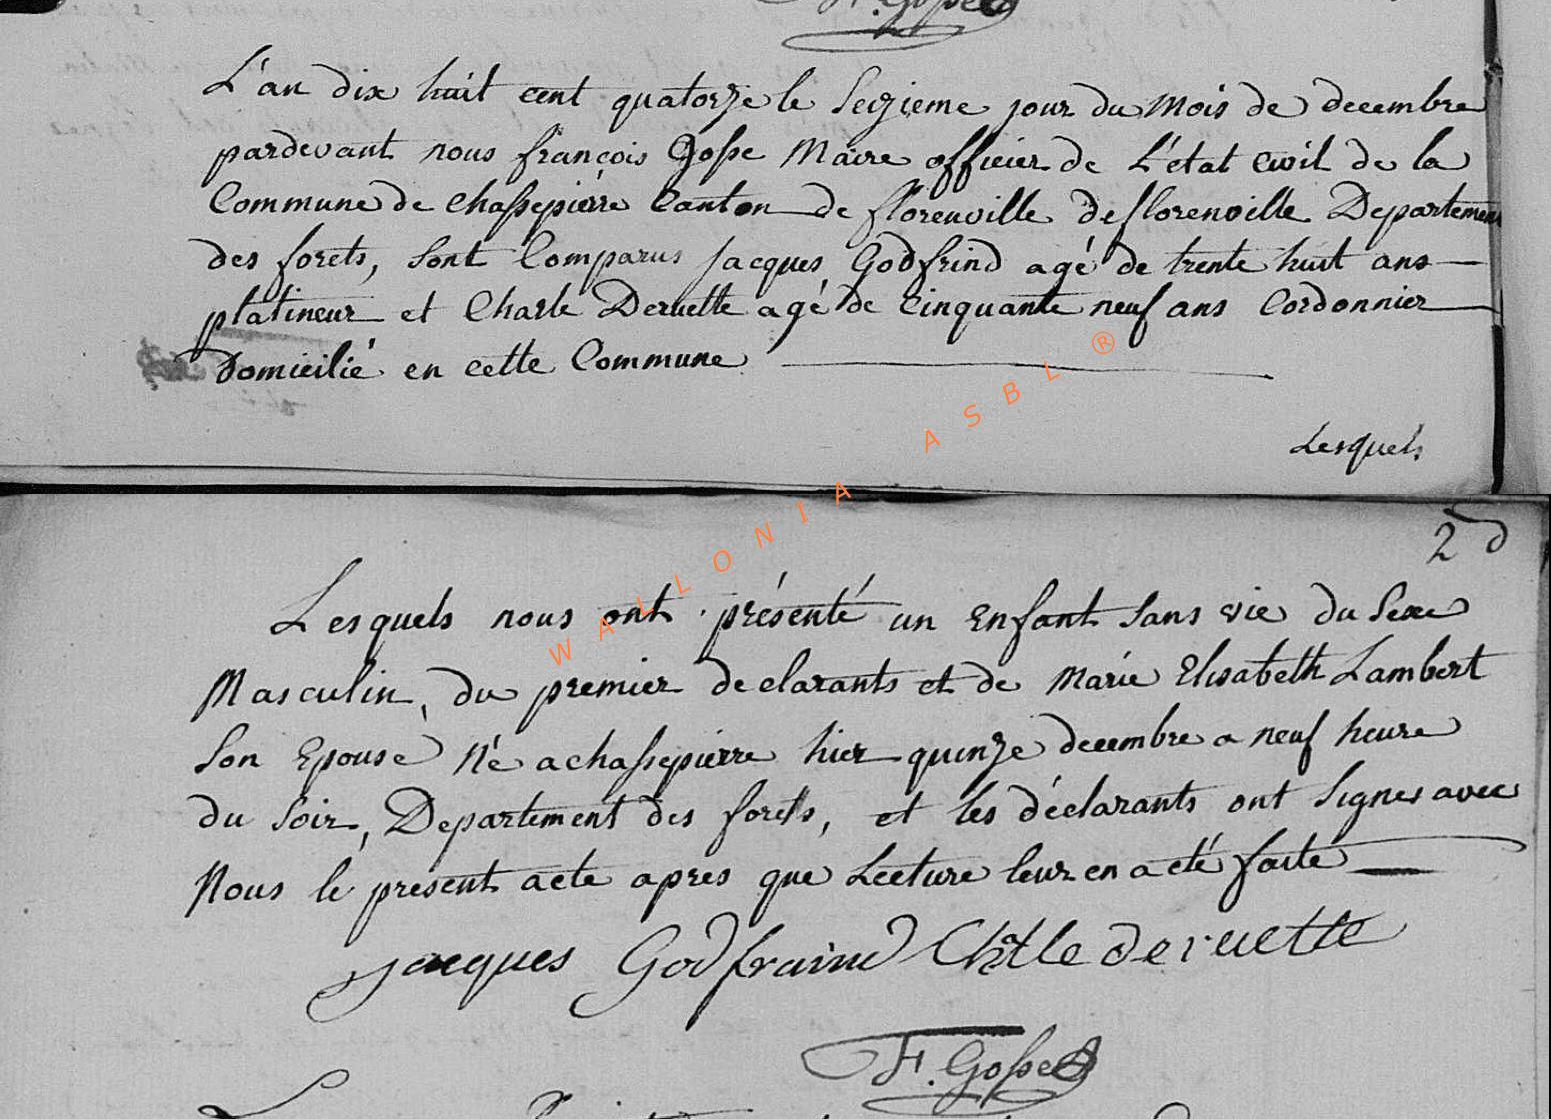 F. Gosse
L'an dix huit cent quatorze le Seizieme jour du Mois de decembre
pardevant nous françois Gosse Maire officier de L'état civil de la
Commune de chassepièrre Canton de florenville de florenville Departement
des forets, sont Comparus Jacques Godfrind agé de trente huit ans
platineur et Charle Deruette agé de cinquante neuf ans Cordonnier
Domicilié en cette Commune
Lesquels
WALLONIA ASBL ®
2d
Lesquels nous ont présenté un Enfant sans vie du sexe
Masculin, du premier declarants et de Marie Elisabeth Lambert
son Epouse Né a chassepierre hier quinze decembre a neuf heure
du soir, Departement des forets, et les déclarants ont signes avec
Nous le present acte apres que Lecture leur en a eté faite
jacques Godfraind Chtle deruette
F. Gosse